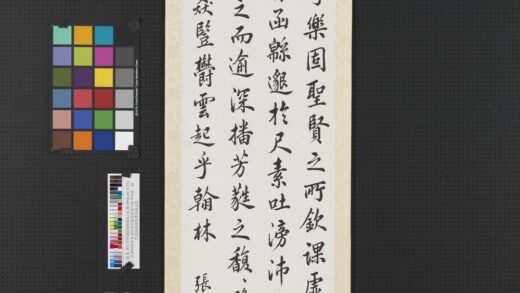 樂固聖賢之所欽課虛
函緜邈於尺素吐滂沛
之而逾深播芳蕤之馥〻
猋豎鬱雲起乎翰林 張